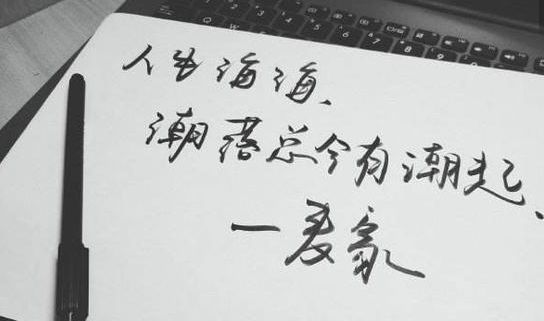 人生海海、
潮落总会有潮起、
一麦家